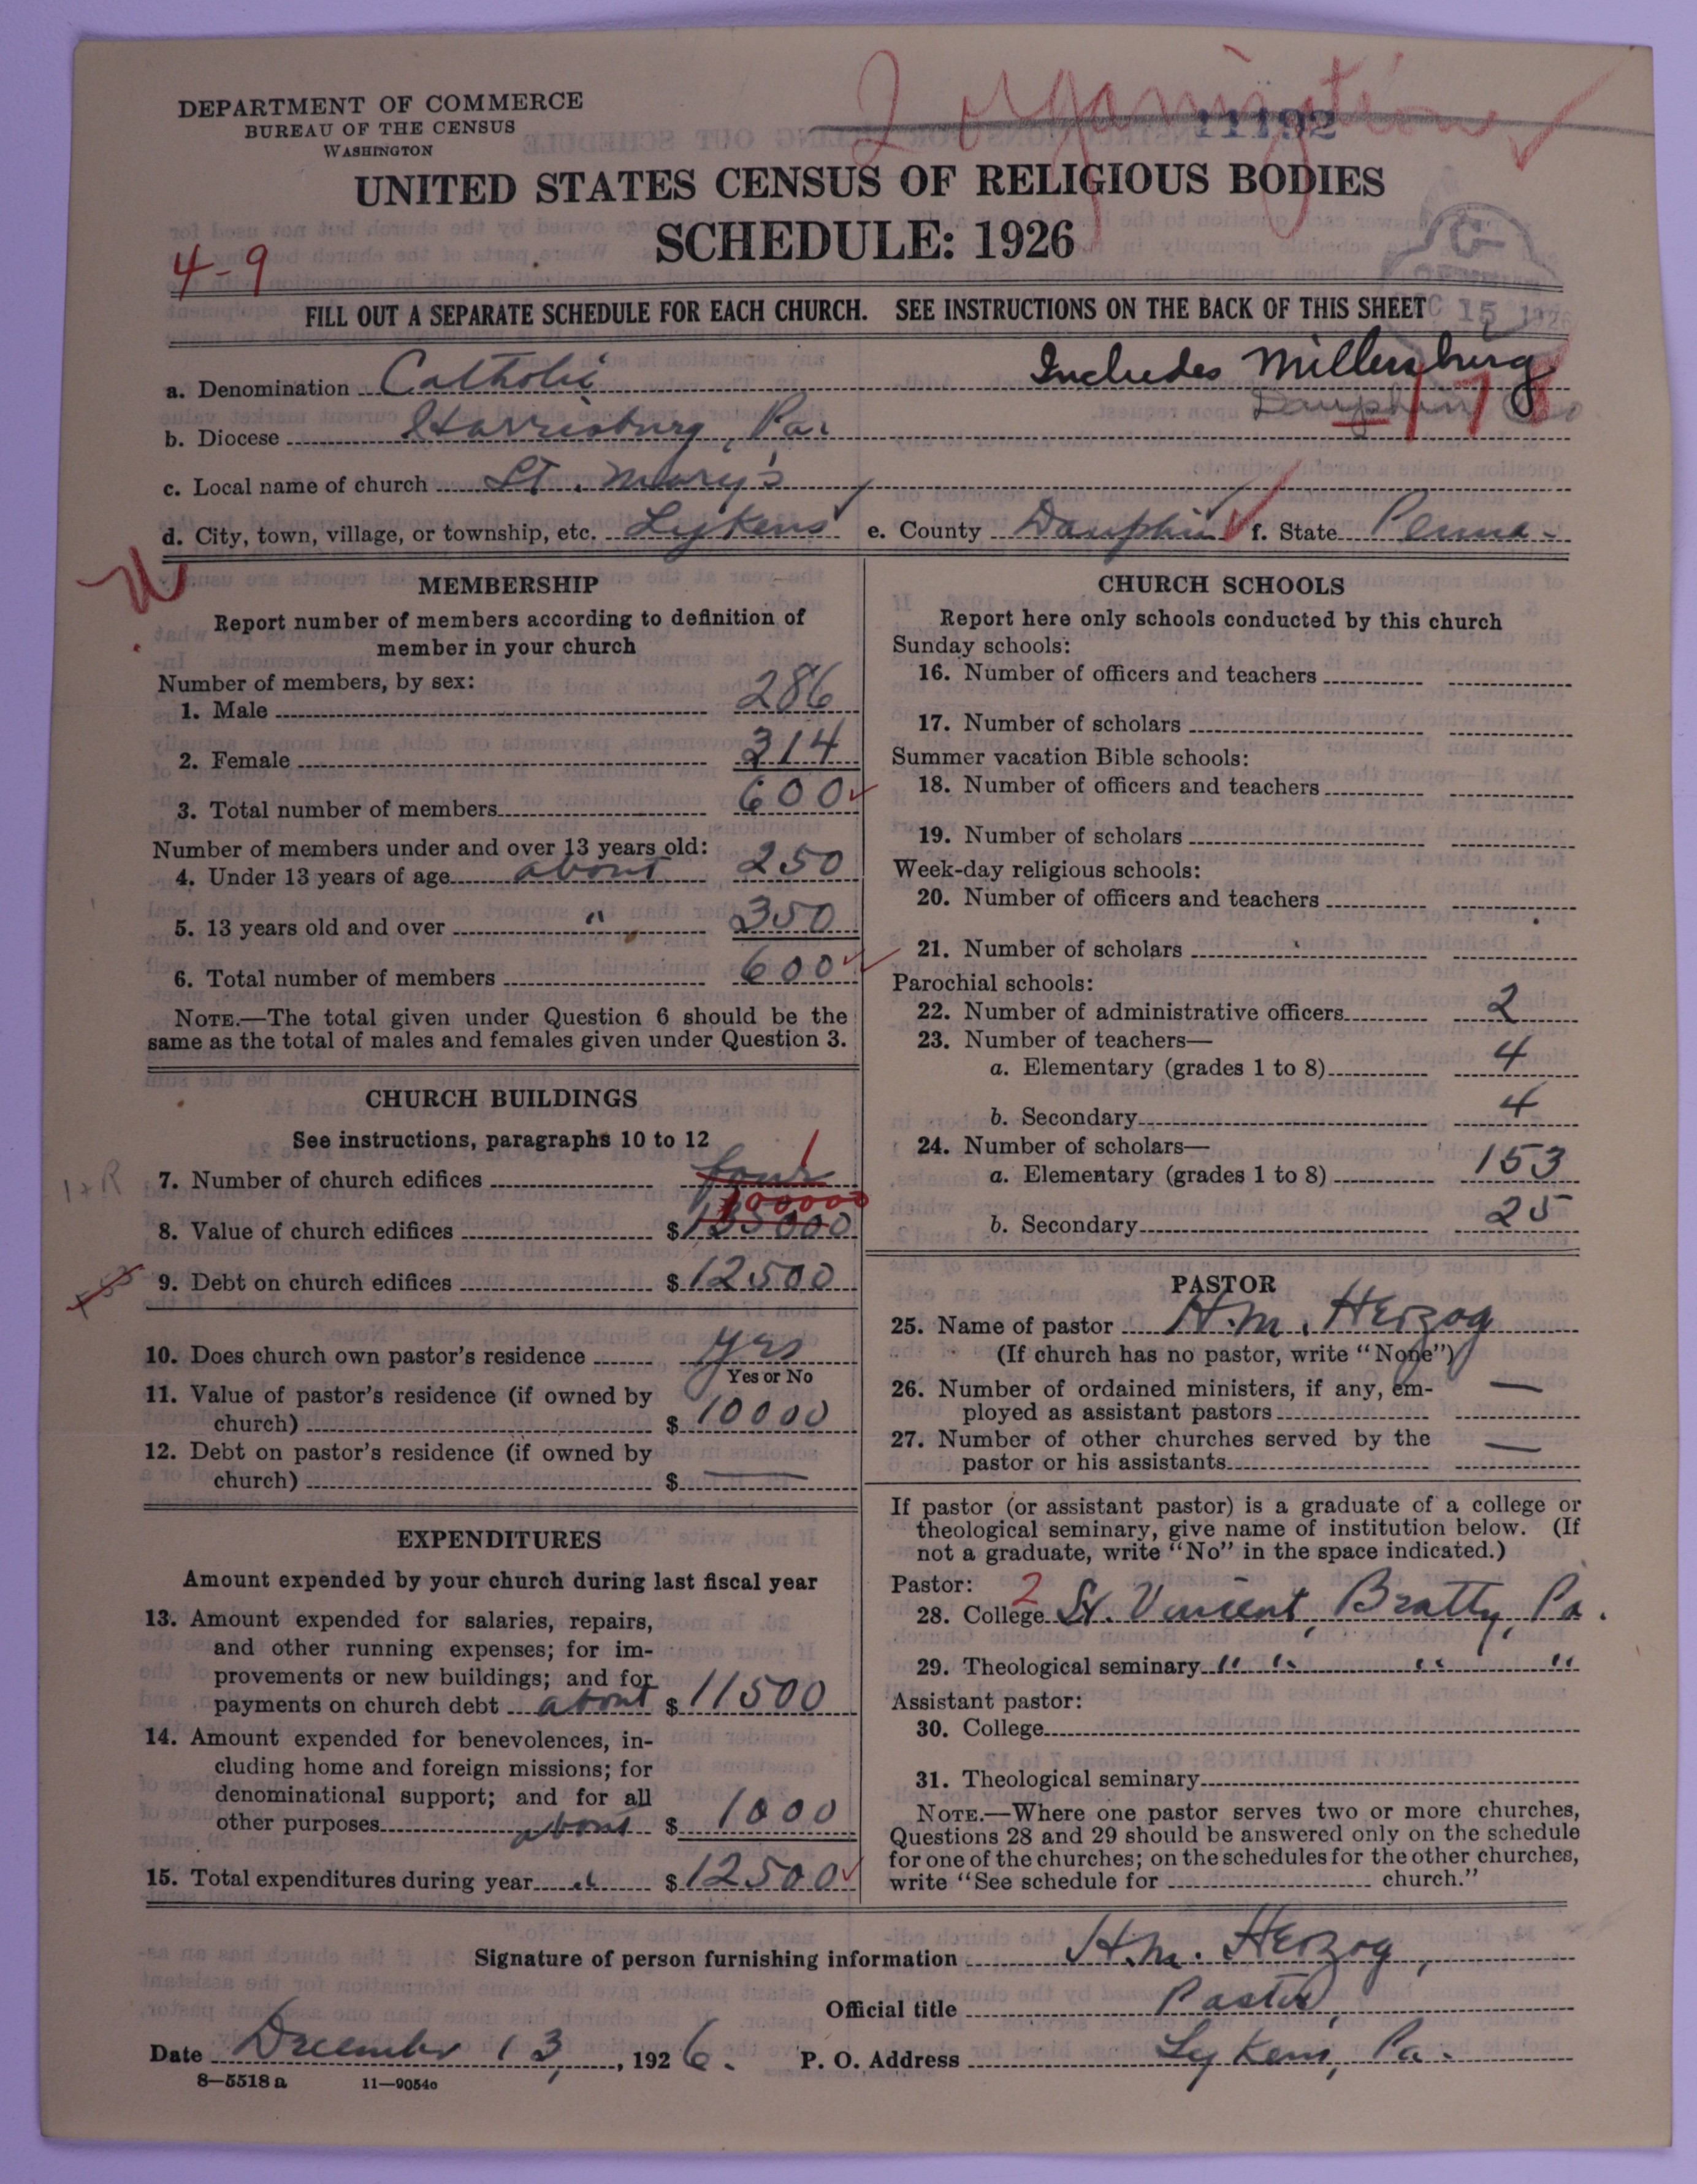 DEPARTMENT OF COMMERCE
BUREAU OF THE CENSUS
WASHINGTON
2 organizations
11192
UNITED STATES CENSUS OF RELIGIOUS BODIES
SCHEDULE: 1926
4-9
FILL OUT A SEPARATE SCHEDULE FOR EACH CHURCH. SEE INSTRUCTIONS ON THE BACK OF THIS SHEET
15 1926
Includes Millersburg
a. Denomination Catholic
Dauphin Co
178
b. Diocese Harrisburg, Pa.
c. Local name of church St. Mary's
d. City, town, village, or township, etc. Lykens e. County Dauphin f. State Penna.
MEMBERSHIP
Report number of members according to definition of
member in your church
Number of members, by sex:
1. Male 286
2. Female 314
3. Total number of members 600
Number of members under and over 13 years old:
4. Under 13 years of age about 250
5. 13 years old and over " 350
6. Total number of members 600
NOTE.—The total given under Question 6 should be the
same as the total of males and females given under Question 3.
CHURCH BUILDINGS
See instructions, paragraphs 10 to 12
1
7. Number of church edifices four
100000
8. Value of church edifices $135000
9. Debt on church edifices $12500
10. Does church own pastor's residence yes
Yes or No
11. Value of pastor's residence (if owned by
church) $10000
12. Debt on pastor's residence (if owned by
church) $ —
EXPENDITURES
Amount expended by your church during last fiscal year
13. Amount expended for salaries, repairs,
and other running expenses; for im-
provements or new buildings; and for
payments on church debt about $11500
14. Amount expended for benevolences, in-
cluding home and foreign missions; for
denominational support; and for all
other purposes about $1000
15. Total expenditures during year " $12500
CHURCH SCHOOLS
Report here only schools conducted by this church
Sunday schools:
16. Number of officers and teachers
17. Number of scholars
Summer vacation Bible schools:
18. Number of officers and teachers
19. Number of scholars
Week-day religious schools:
20. Number of officers and teachers
21. Number of scholars
Parochial schools:
22. Number of administrative officers 2
23. Number of teachers—
a. Elementary (grades 1 to 8) 4
b. Secondary 4
24. Number of scholars—
a. Elementary (grades 1 to 8) 153
b. Secondary 25
PASTOR
25. Name of pastor H.M. Herzog
(If church has no pastor, write "None")
26. Number of ordained ministers, if any, em-
ployed as assistant pastors —
27. Number of other churches served by the
pastor or his assistants —
If pastor (or assistant pastor) is a graduate of a college or
theological seminary, give name of institution below. (If
not a graduate, write "No" in the space indicated.)
Pastor: 2
28. College St. Vincent, Beatty, Pa.
29. Theological seminary " " " "
Assistant pastor:
30. College
31. Theological seminary
NOTE.—Where one pastor serves two or more churches,
Questions 28 and 29 should be answered only on the schedule
for one of the churches; on the schedules for the other churches,
write "See schedule for church."
Signature of person furnishing information H.M. Herzog,
Official title Pastor,
Date December 13, 1926. P. O. Address Lykens, Pa.
8—5518 a 11—9054c